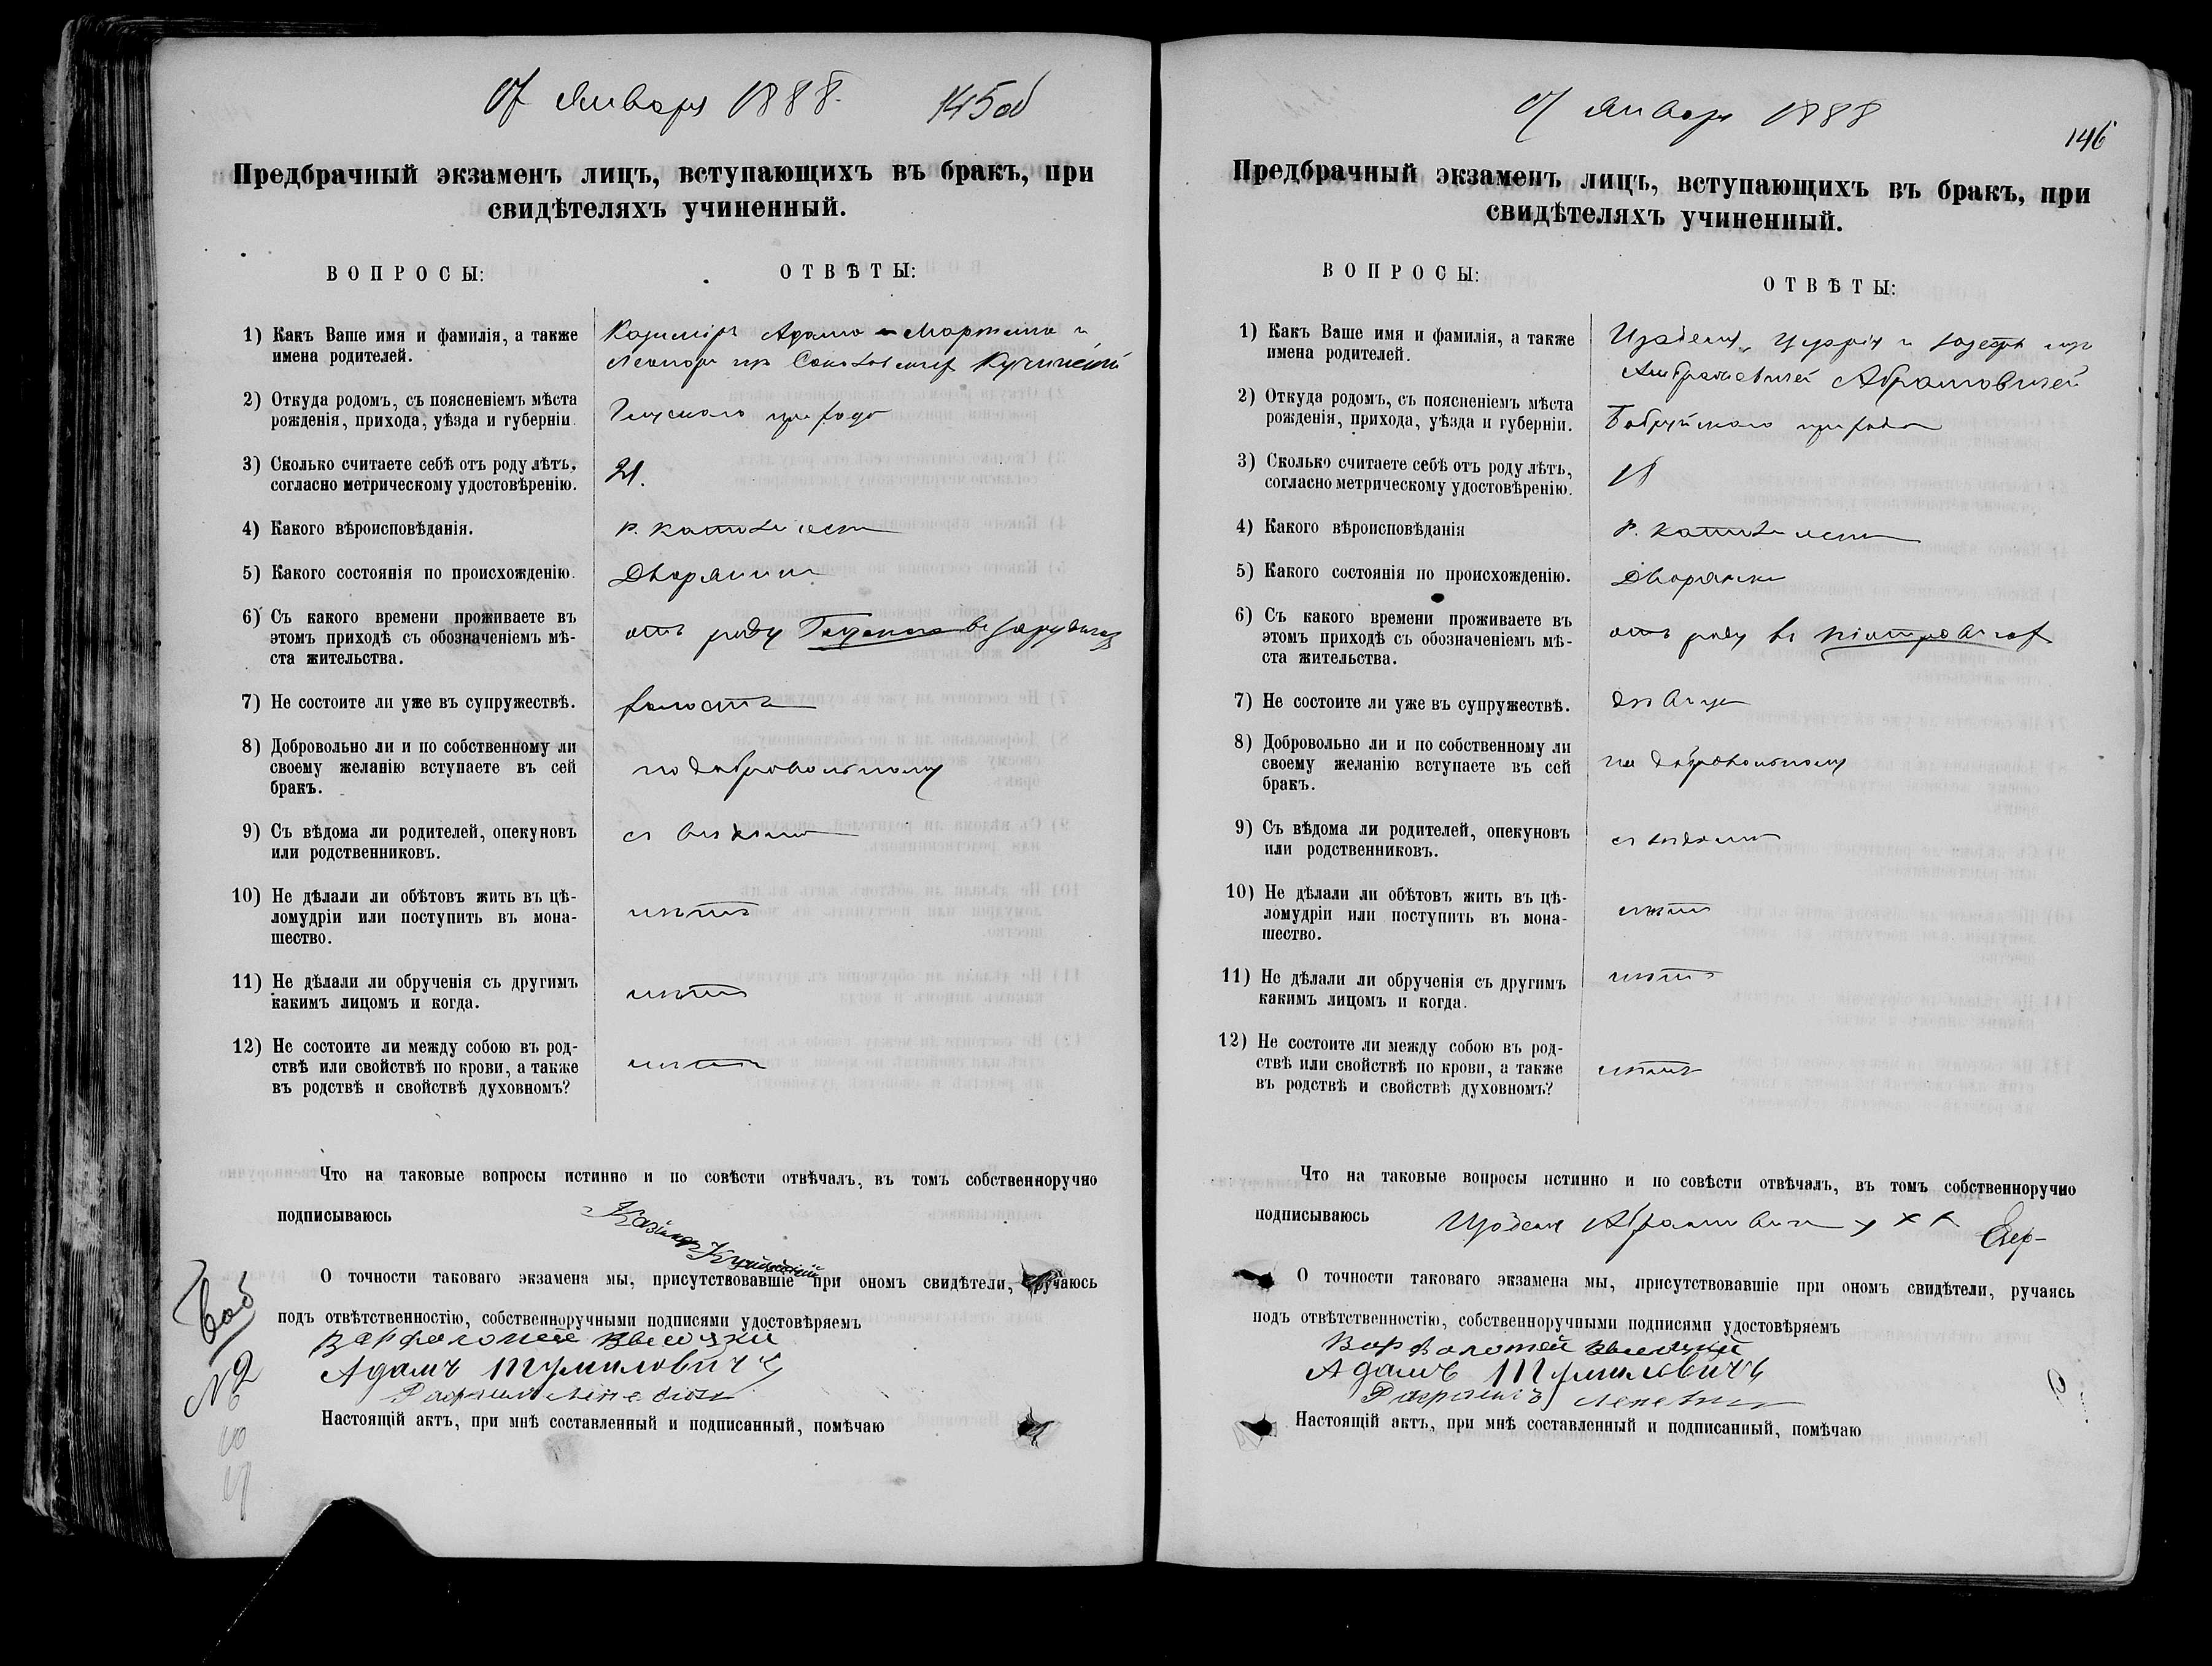 Января 1888. 145об
Предбрачный экзаменъ лицъ, вступающихъ въ бракъ, при
свидѣтеляхъ учиненный.
ВОПРОСЫ: ОТВѢТЫ:
1) Какъ Ваше имя и фамилія, а также
имена родителей.
Казиміръ Адама
2) Откуда родомъ, съ поясненіемъ мѣста
рожденія, прихода, уѣзда и губерніи.
прихода
3) Сколько считаете себѣ отъ роду лѣтъ,
согласно метрическому удостовѣренію.
21.
4) Какого вѣроисповѣданія.
р. католическ
5) Какого состоянія по происхожденію.
Дворянинъ
6) Съ какого времени проживаете въ
этомъ приходѣ съ обозначеніемъ мѣ-
ста жительства.
отъ роду
7) Не состоите ли уже въ супружествѣ.
холостъ
8) Добровольно ли и по собственному ли
своему желанію вступаете въ сей
бракъ.
по добровольному
9) Съ вѣдома ли родителей, опекуновъ
или родственниковъ.
съ вѣдома
10) Не дѣлали ли обѣтовъ жить въ цѣ-
ломудріи или поступить въ мона-
шество.
нѣтъ
11) Не дѣлали ли обрученія съ другимъ
какимъ лицомъ и когда.
нѣтъ
12) Не состоите ли между собою въ род-
ствѣ или свойствѣ по крови, а также
въ родствѣ и свойствѣ духовномъ?
нѣтъ
Что на таковые вопросы истинно и по совѣсти отвѣчалъ, въ томъ собственноручно
подписываюсь
О точности таковаго экзамена мы, присутствовавшіе при ономъ свидѣтели, ручаюсь
подъ отвѣтственностію, собственноручными подписями удостовѣряемъ
Адамъ Тумиловичъ
Настоящій актъ, при мнѣ составленный и подписанный, помѣчаю
№ 2
Января 1888
146
Предбрачный экзаменъ лицъ, вступающихъ въ бракъ, при
свидѣтеляхъ учиненный.
ВОПРОСЫ: ОТВѢТЫ:
1) Какъ Ваше имя и фамилія, а также
имена родителей.
Абрамовичей
2) Откуда родомъ, съ поясненіемъ мѣста
рожденія, прихода, уѣзда и губерніи.
Бобруйскаго прихода
3) Сколько считаете себѣ отъ роду лѣтъ,
согласно метрическому удостовѣренію.
18
4) Какого вѣроисповѣданія
р. католическ
5) Какого состоянія по происхожденію.
Дворянка
6) Съ какого времени проживаете въ
этомъ приходѣ съ обозначеніемъ мѣ-
ста жительства.
отъ роду въ
7) Не состоите ли уже въ супружествѣ.
дѣвица
8) Добровольно ли и по собственному ли
своему желанію вступаете въ сей
бракъ.
по добровольному
9) Съ вѣдома ли родителей, опекуновъ
или родственниковъ.
съ вѣдома
10) Не дѣлали ли обѣтовъ жить въ цѣ-
ломудріи или поступить въ мона-
шество.
нѣтъ
11) Не дѣлали ли обрученія съ другимъ
какимъ лицомъ и когда.
нѣтъ
12) Не состоите ли между собою въ род-
ствѣ или свойствѣ по крови, а также
въ родствѣ и свойствѣ духовномъ?
нѣтъ
Что на таковые вопросы истинно и по совѣсти отвѣчалъ, въ томъ собственноручно
подписываюсь
О точности таковаго экзамена мы, присутствовавшіе при ономъ свидѣтели, ручаясь
подъ отвѣтственностію, собственноручными подписями удостовѣряемъ
Адамъ Тумиловичъ
Настоящій актъ, при мнѣ составленный и подписанный, помѣчаю